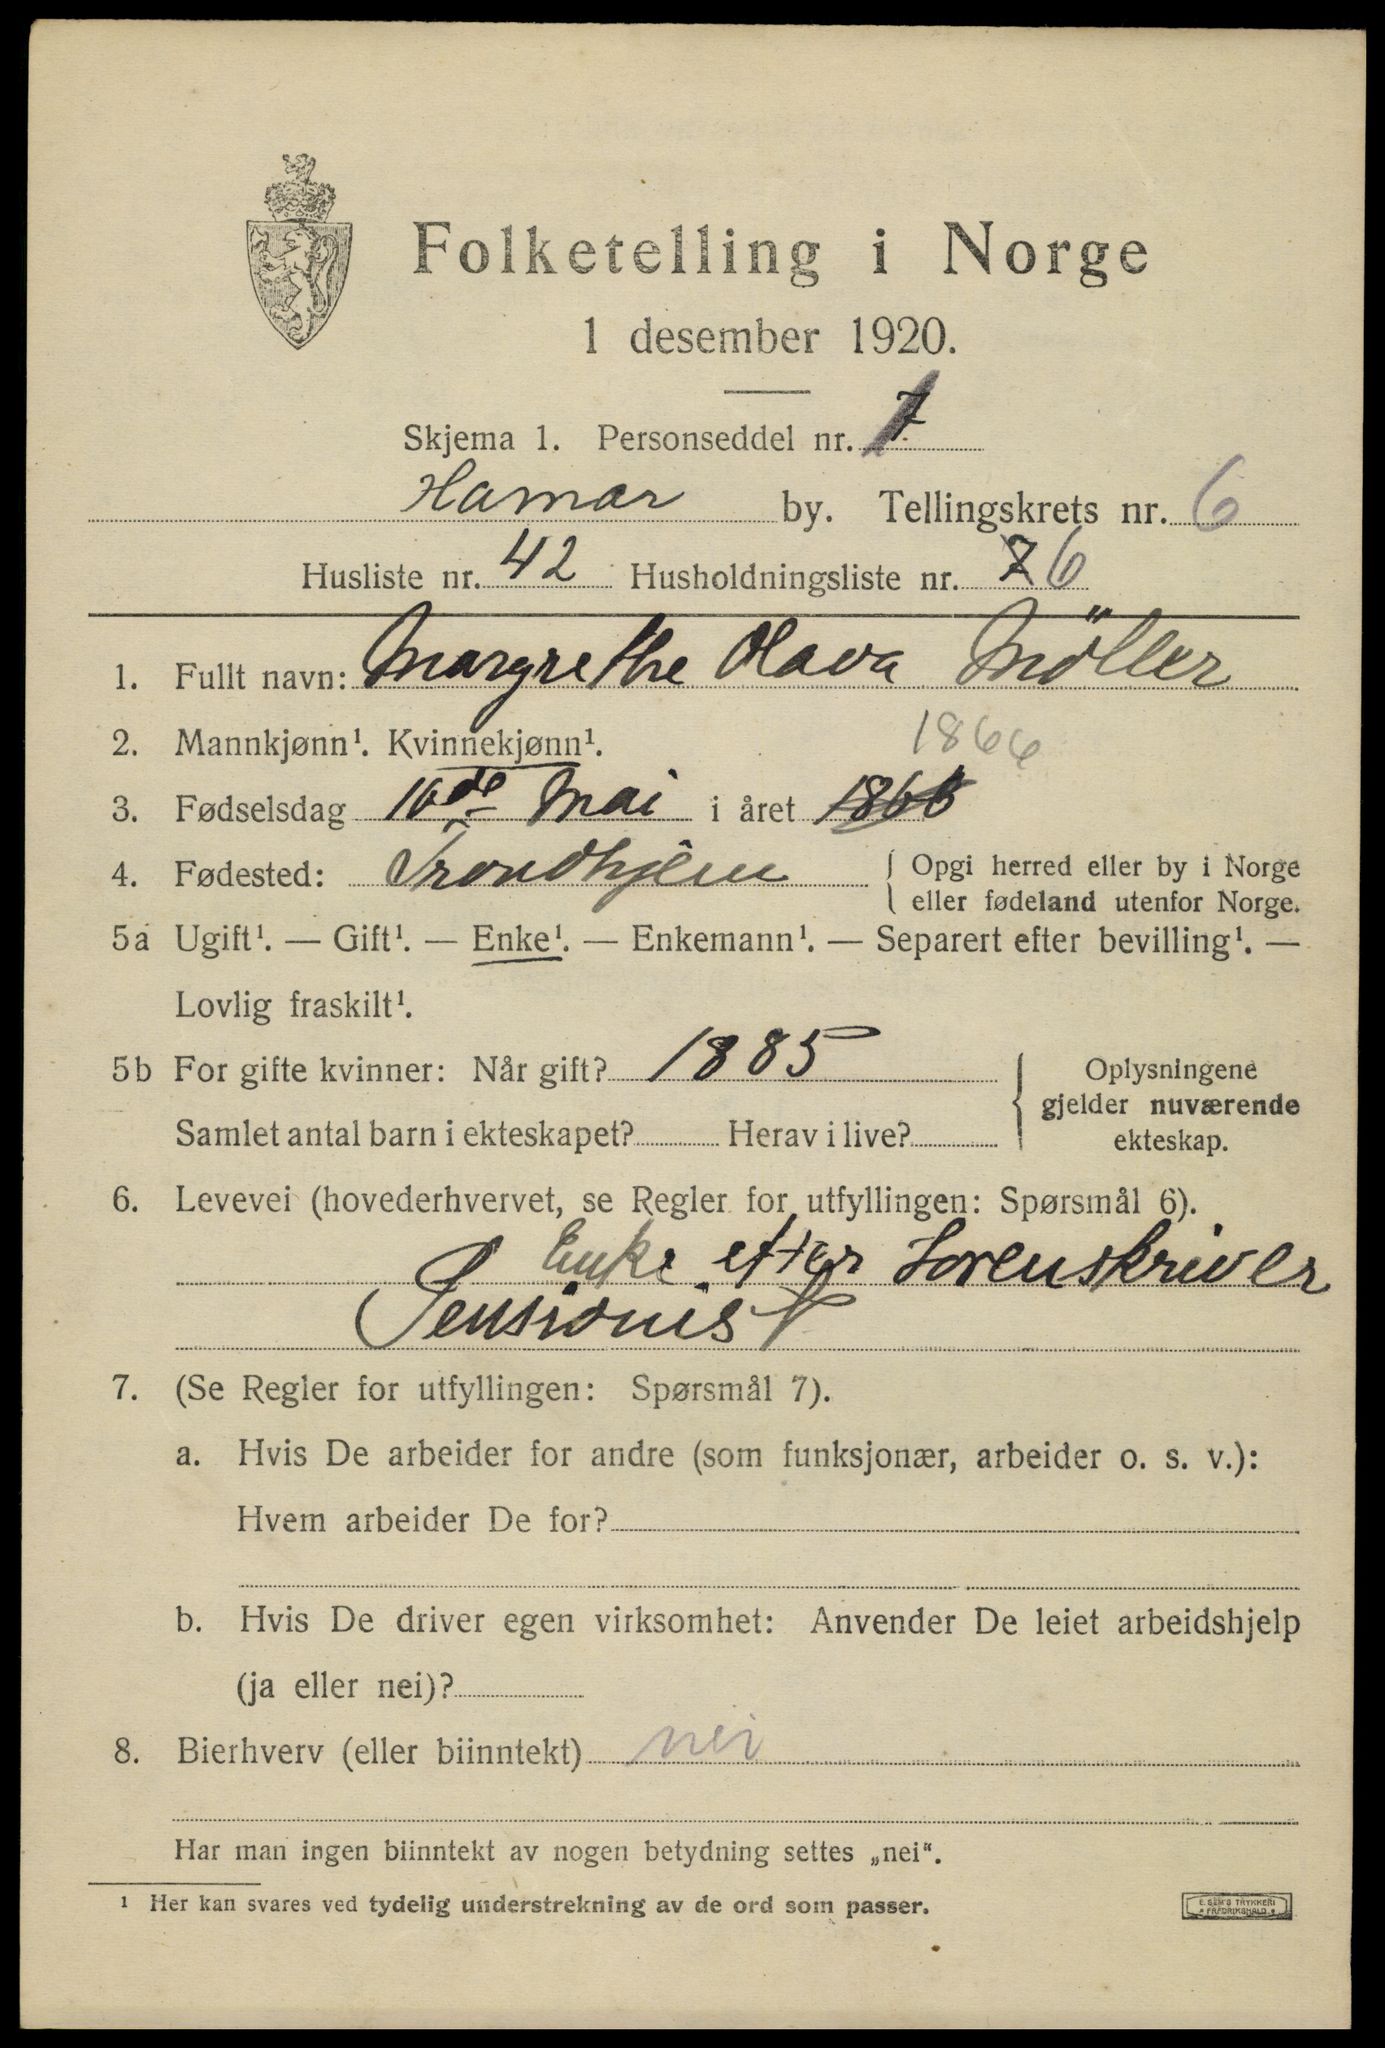 Folketelling i Norge
1 desember 1920.
Skjema 1. Personseddel nr.
Hamar by. Tellingskrets nr. 6
Husliste nr. 42 Husholdningsliste nr. 6
1. Fullt navn: Margrethe Olava Møller
2. Mannkjønn¹. Kvinnekjønn¹.
1866
3. Fødselsdag 10de Mai i året
4. Fødested: Trondhjem { Opgi herred eller by i Norge
eller fødeland utenfor Norge.
5a Ugift¹. — Gift¹. — Enke¹. — Enkemann¹. — Separert efter bevilling¹. —
Lovlig fraskilt¹.
5b For gifte kvinner: Når gift? 1885 { Oplysningene
gjelder nuværende
Samlet antal barn i ekteskapet? Herav i live? ekteskap.
6. Levevei (hovederhvervet, se Regler for utfyllingen: Spørsmål 6).
Enke etter Sorenskriver
Pensionist
7. (Se Regler for utfyllingen: Spørsmål 7).
a. Hvis De arbeider for andre (som funksjonær, arbeider o. s. v.):
Hvem arbeider De for?
b. Hvis De driver egen virksomhet: Anvender De leiet arbeidshjelp
(ja eller nei)?
8. Bierhverv (eller biinntekt) nei
Har man ingen biinntekt av nogen betydning settes „nei“.
¹ Her kan svares ved tydelig understrekning av de ord som passer.
E. SEM'S TRYKKERI
FREDRIKSHALD